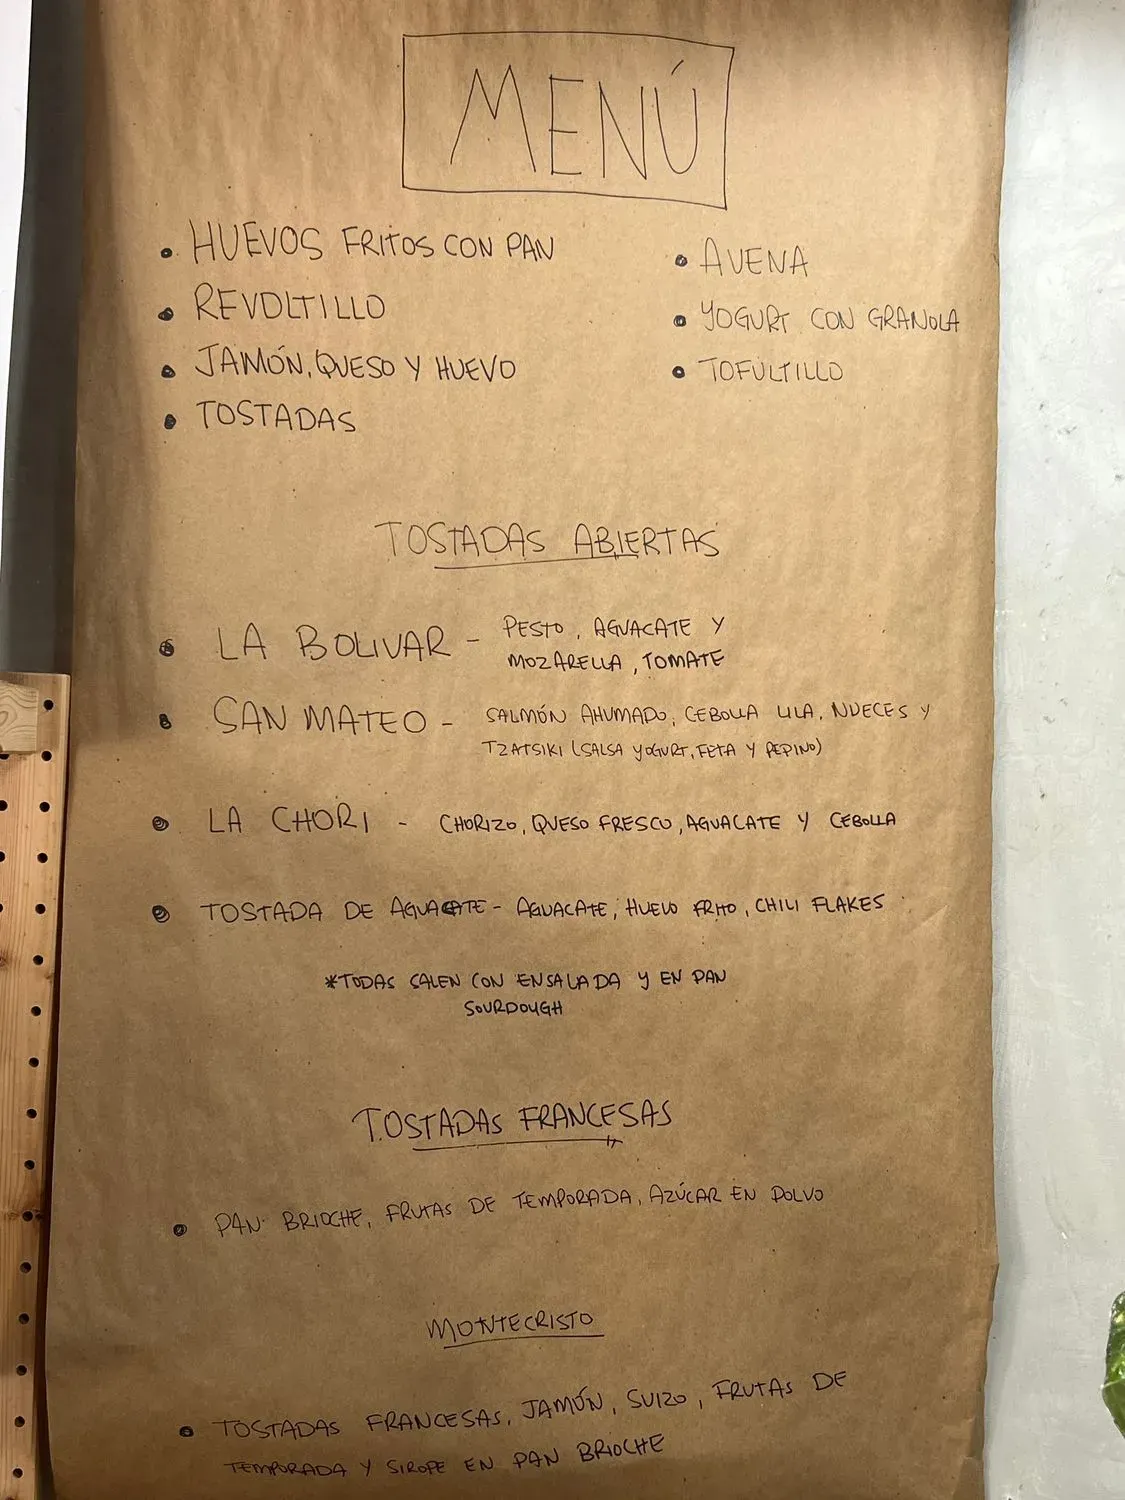 MENÚ
• HUEVOS FRITOS CON PAN
• REVOLTILLO
• JAMÓN, QUESO Y HUEVO
• TOSTADAS
• AVENA
• YOGURT CON GRANOLA
• TOFULTILLO
TOSTADAS ABIERTAS
• LA BOLIVAR - PESTO, AGUACATE Y
MOZARELLA, TOMATE
• SAN MATEO - SALMÓN AHUMADO, CEBOLLA LILA, NUECES Y
TZATSIKI (SALSA YOGURT, FETA Y PEPINO)
• LA CHORI - CHORIZO, QUESO FRESCO, AGUACATE Y CEBOLLA
• TOSTADA DE AGUACATE - AGUACATE, HUEVO FRITO, CHILI FLAKES
*TODAS SALEN CON ENSALADA Y EN PAN
SOURDOUGH
TOSTADAS FRANCESAS
• PAN BRIOCHE, FRUTAS DE TEMPORADA, AZÚCAR EN POLVO
MONTECRISTO
• TOSTADAS FRANCESAS, JAMÓN, SUIZO, FRUTAS DE
TEMPORADA Y SIROPE EN PAN BRIOCHE